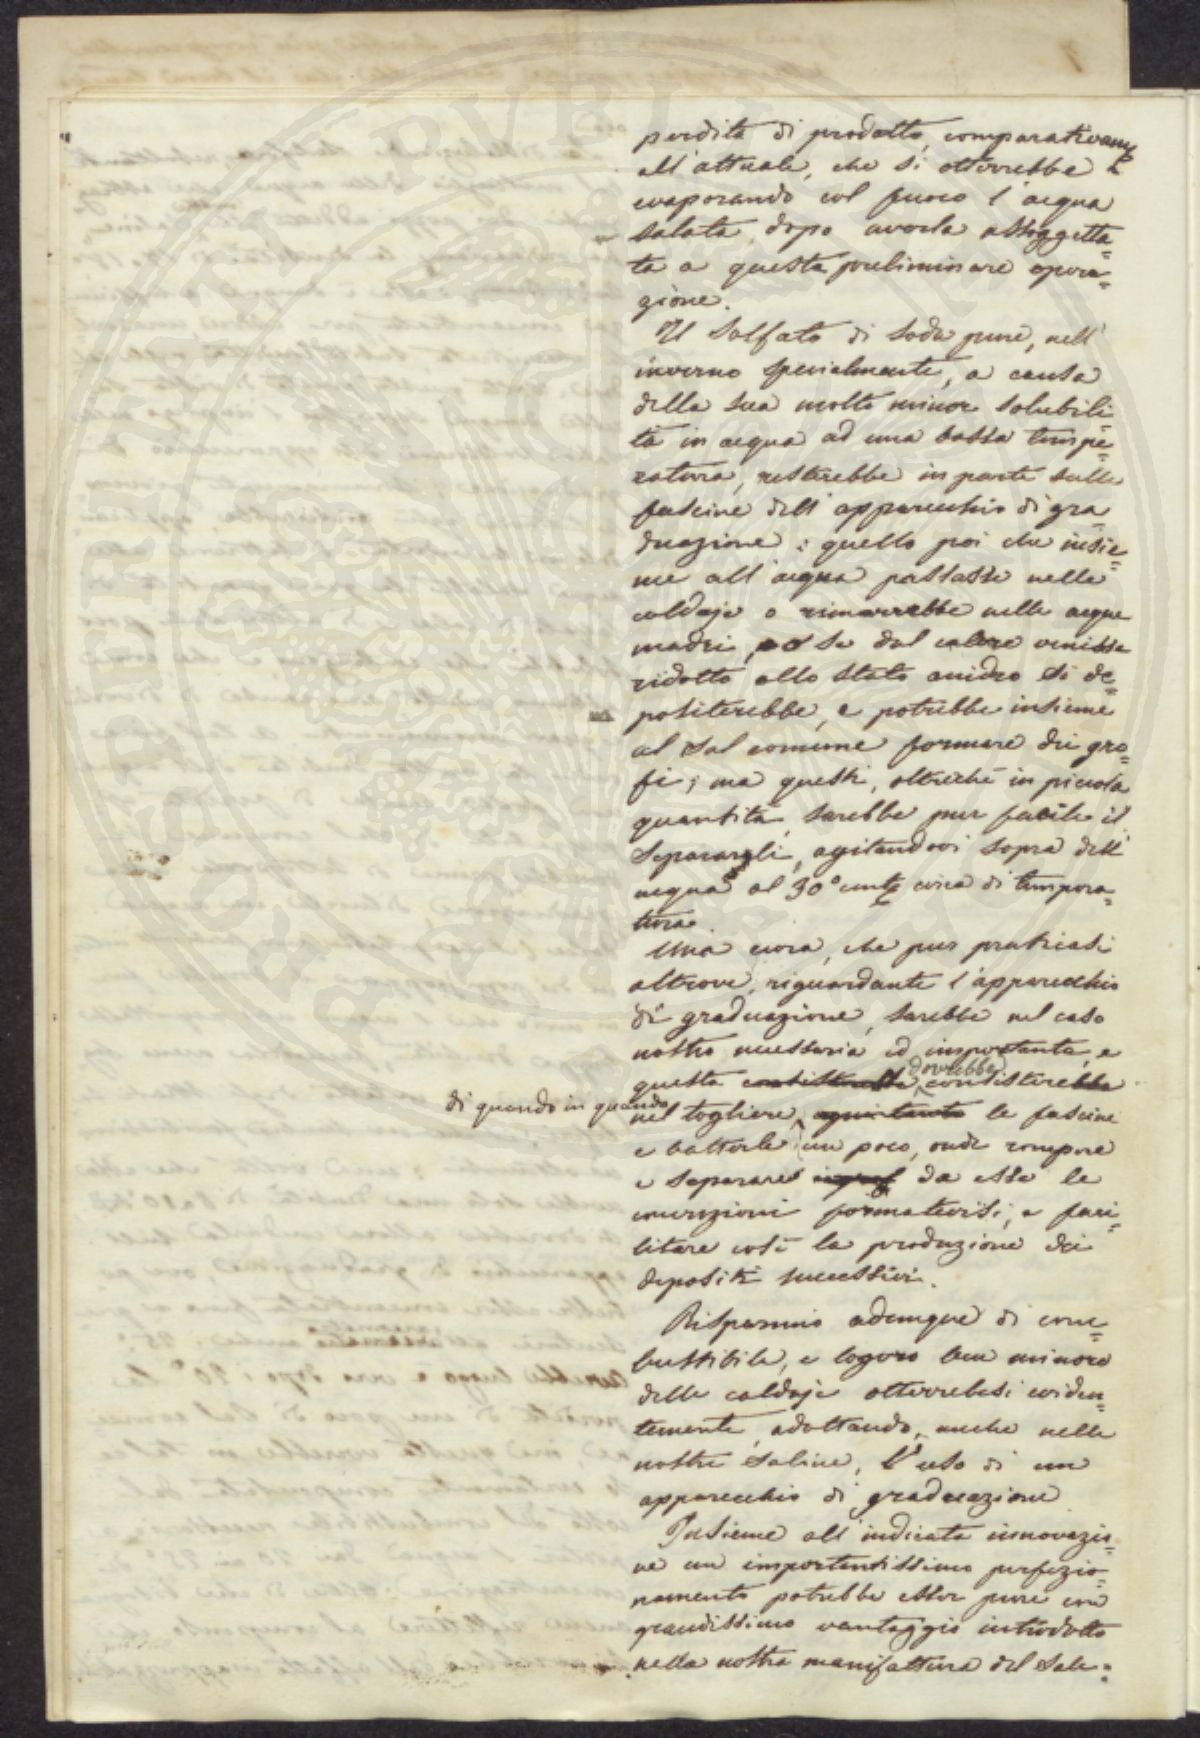 perdita di prodotto, comparativamte
all'attuale, che si otterrebbe
evaporando col fuoco l'acqua
salata, dopo averla assoggetta-
ta a questa preliminare opera-
zione.
Il Solfato di Soda pure, nell'
inverno specialmente, a causa
della sua molto minor solubili
tà in acqua ad una bassa tempe-
ratura, resterebbe in parte sulle
fascine dell'apparecchio di gra
duazione; quello poi che insie-
me all'acqua passasse nelle
caldaje o rimarrebbe nelle acque
madri, o se dal calore venisse
ridotto allo stato anidro si de-
positerebbe, e potrebbe insieme
al Sal comune formare dei gro-
fi; ma questi, oltrechè in piccola
quantità, sarebbe pur facile il
separargli, agitandovi sopra dell'
acqua al 30° centg circa di tempera-
tura.
Una cura, che pur praticasi
altrove, riguardante l'apparecchio
di graduazione, sarebbe nel caso
nostro necessaria ed importante, e
dovrebbe
questa consisterebbe
di quando in quando
nel togliere, le fascine
e batterle un poco, onde rompere
e separare da esse le
incrizioni formatevisi, e faci-
litare così la produzione dei
depositi successivi.
Risparmio adunque di com-
bustibile, e logoro ben minore
delle caldaje otterrebesi eviden-
temente, adottando, anche nelle
nostre Saline, l'uso di un
apparecchio di graduazione
Insieme all'indicata innovazio-
ne un importantissimo perfezio-
namento potrebbe esser pure con
grandissimo vantaggio introdotto
nella nostra manifattura del Sale: